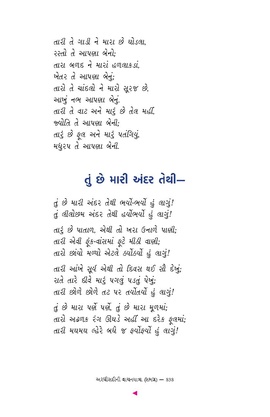 તારી તે ગાડી ને મારા છે ઘોડલા,
રસ્તો તે આપણા બેનો;
તારા બળદ ને મારાં હળલાકડાં,
ખેતર તે આપણા બેનું;
તારો તે ચાંદલો ને મારો સૂરજ છે.
આખું નભ આપણા બેનું.
તારી તે વાટ અને મારું છે તેલ મહીં,
જ્યોતિ તે આપણા બેની;
તારું છે ફૂલ અને મારું પતંગિયું,
મધુરપ તે આપણા બેની.
તું છે મારી અંદર તેથી—
તું છે મારી અંદર તેથી ભર્યોભર્યો હું લાગું!
તું લીલોછમ અંદર તેથી હર્યોભર્યો હું લાગું!
તારું છે પાતાળ, એથી તો ખરા ઉનાળે પાણી;
તારી એવી ફૂંક-વાંસમાં ફૂટે મીઠી વાણી;
તારો છાંયો મળ્યો એટલે ઠર્યોઠર્યો હું લાગું!
તારી આંખે સૂર્ય એથી તો દિવસ થઈ સૌ દેખું;
રાતે તારે દીવે મારું પગલું પડતું પેખું;
તારી છોળે છોળે તટ પર તર્યોતર્યો હું લાગું!
તું છે મારા પર્ણે પર્ણે, તું છે મારા મૂળમાં;
તારો અઢળક રંગ ઊઘડે અહીં આ દરેક ફૂલમાં;
તારી મઘમઘ લ્હેરે બધે જ ફર્યોફર્યો હું લાગું!